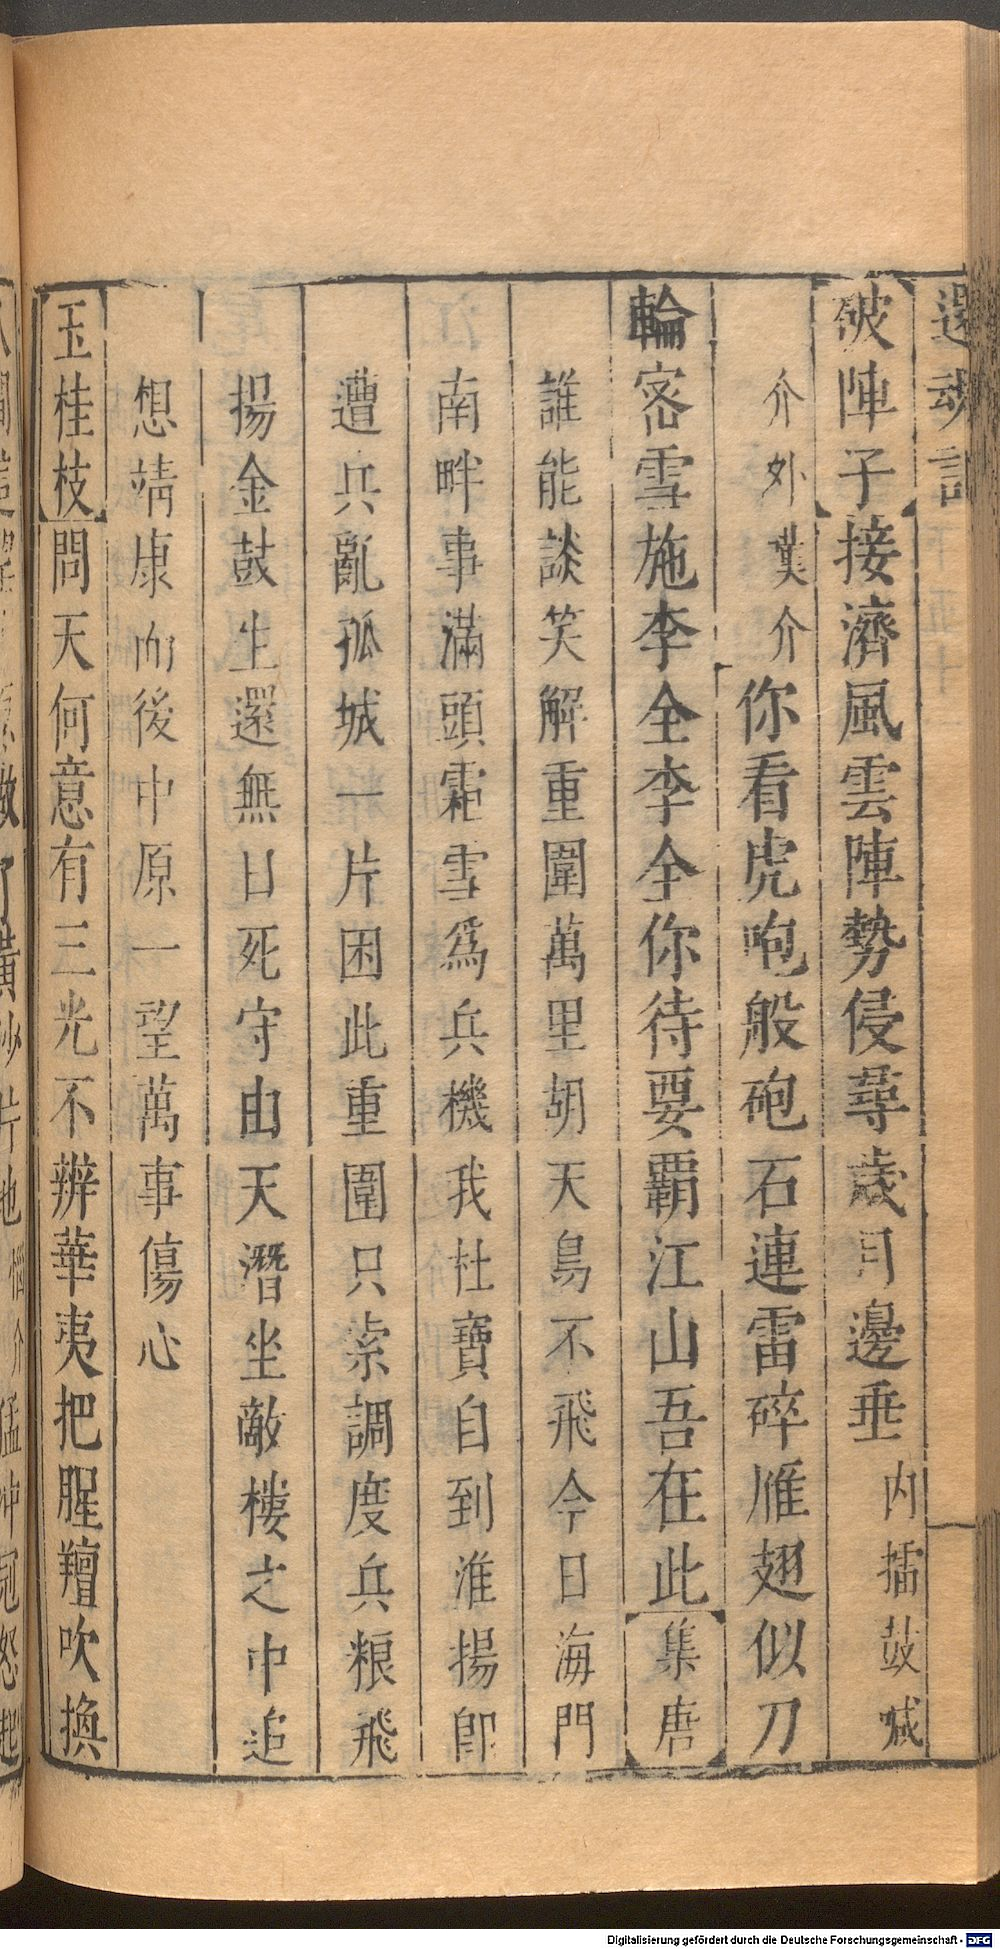 還魂記 下 五十
【破陣子】接濟風雲陣勢侵尋歲月邊垂內擂鼓喊
介外羙介你看虎咆般砲石連雷碎雁翅似刀
輪密雪施李全李全你待要覇江山吾在此【集唐】
誰能談笑解重圍萬里胡天鳥不飛今日海門
南畔事滿頭霜雪爲兵機我杜寶自到淮揚卽
遭兵亂孤城一片困此重圍只索調度兵粮飛
揚金鼓生還無日死守由天潛坐敵樓之中追
想靖康而後中原一望萬事傷心
【玉桂枝】問天何意有三光不辨華夷把腥羶吹換
敵了黃沙片地惱介猛冲冠怒起
Digitalisierung gefördert durch die Deutsche Forschungsgemeinschaft - DFG